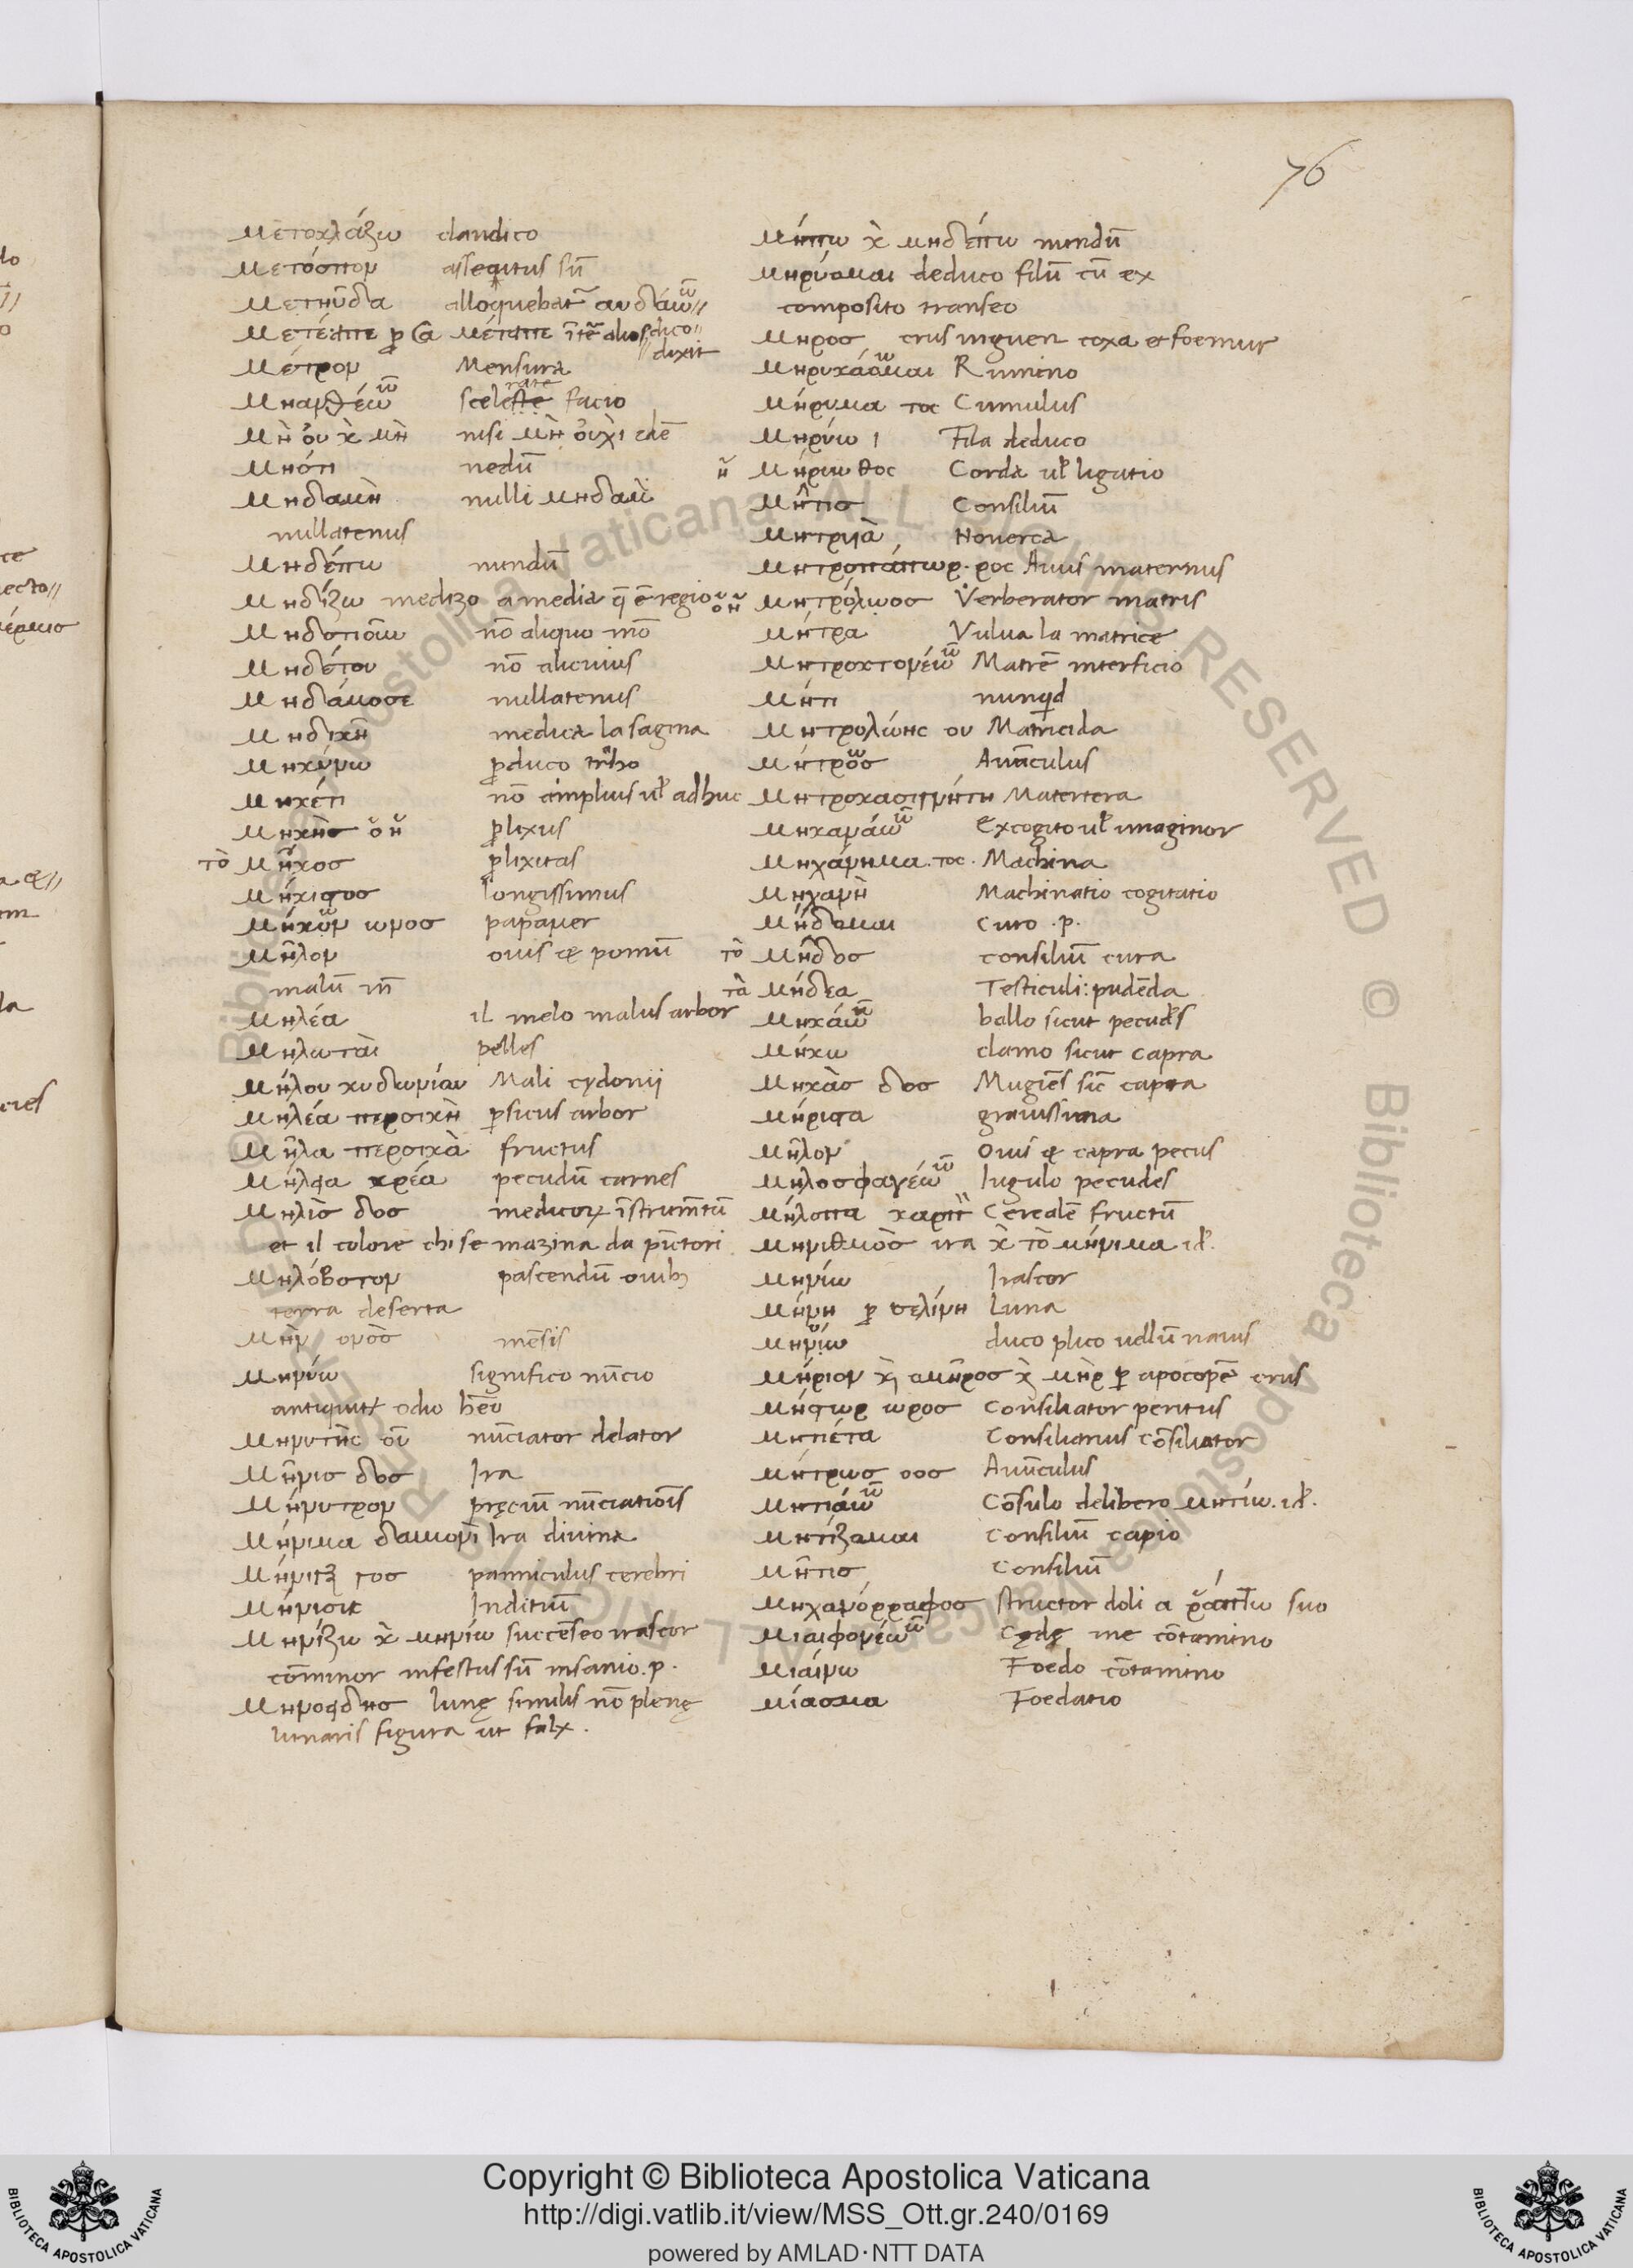 76
μετοκλάζω claudico
μετόσπον assequtus sū
μετηύδα alloquebat̄ αυδάω
μετέειπε
dixit
μέτρον Mensura
facio
μὴ ου κ̀ μὴ nisi μὴ οὐχὶ idē
μηότι nedū
μηδαμὴ nulli μηδαμ
nullatenus
μηδέπω nundū
μηδίζω medizo a media q̄ ē regio
nō aliquo mō
μηδέτου nō alicuius
μηδάμοσε nullatenus
μηδικὴ medica la sagina
μηκύνω ꝓduco trā̄ho
μηκέτι nō amplius ul̛ adhuc
μηκὴσ ὁ ἡ ꝓlixus
τὸ μῆκοσ ꝓlixitas
μήκιστοσ longissimus
μήκων ωνοσ papauer
μῆλον ouis & pomū
malū
μηλέα il melo malus arbor
μηλωταὶ pelles
μήλου κυδωνίου Mali cydonij
μηλέα περσικὴ ꝑsicus arbor
μῆλα περσικὰ fructus
μήλεια κρέα pecudū carnes
μηλὶσ δοσ medicoꝝ īstrum̄tū
et il colore chi se mazina da pīctori
μηλόβοτον pascendū ouibꝫ
terra deserta
μὴν ονὸσ mēsis
μηνύω significo nūcio
odio
μηνυτὴς οῦ nūciator delator
μῆνισ δοσ Ira
μήνυτρον pręciū nūciatiōis
μήνιμα δαιμονι Ira diuina
γοσ panniculus cerebri
Inditiū
μηνίζω κ̀ μηνίω succēseo irascor
cōminor infestus sū insanio .p.
lunę similis nō plenę
lunaris figura ut falx .
μήπω κ̀ μηδέπω nundū
μηρύομαι deduco filū cū ex
composito transeo
μηροσ crus inguen coxa et foemur
μηρυκάομαι Rumino
μήρυμα τος Cumulus
μηρύω ι Fila deduco
ἡ μήρινθος Corda ul̛ ligatio
μῆτισ Consiliū
μητρυιὰ Nouerca
μητροπάτωρ. ρος Auus maternus
ὁ ἡ Verberator matris
μήτρα Vulua la matrice
μητροκτονέω Matrē interficio
μήτι nunqd
μητρολώης ου Matricida
μήτρωσ Auūculus
μητροκασιγνήτη Matertera
μηχανάω Excogito ul̛ imaginor
μηχάνημα . τος . Machina
μηχανὴ Machinatio cogitatio
μήδομαι curo .p.
τὸ μῆδοσ consiliū cura
τὰ μήδεα Testiculi: pudēda
μηκάω ballo sicut pecudes
μήκω clamo sicut capra
μηκὰσ δοσ Mugiēs sic̄ capra
μήριστα grauissima
μῆλον Ouis & capra pecus
μηλοσφαγέω Iugulo pecudes
μήλοπα καρπ Cerealē fructū
μηνιθμὸσ ira κ̀ τὸ μήνιμα id.
μηνίω Irascor
μήνη ꝑ σελήνη Luna
duco plico uellū nauis
μήριον κ̀ αμῆροσ κ̀ μὴρ ꝑ apocopē crus
μήστωρ ωροσ Consiliator peritus
μητιέτα Consiliarius cōsiliator
μήτρωσ οοσ Auūculus
μητιάω Cōsulo delibero μητίω . id.
μητίζομαι Consiliū capio
μῆτισ Consiliū
μηχανόρραφοσ structor doli a ράπτω suo
μιαιφονέω Cędę me cōtamino
μιαίνω Foedo cōtamino
μίασμα Foedatio
Copyright © Biblioteca Apostolica Vaticana
http://digi.vatlib.it/view/MSS_Ott.gr.240/0169
powered by AMLAD·NTT DATA